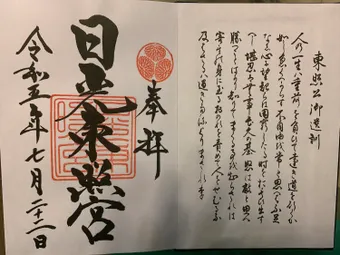 東照公御遺訓
人の一生は重荷を負て遠き道を行くか
如しいそくへからす不自由を常と思へは不足
なし心に望起らは困窮したる時を思ひ出す
へし堪忍は無事長久の基怒は敵と思へ
勝つことはかり知りてまくる事を知らされは
害其身に至るおのれを責めて人をせむるな
及はさるは過きたるよりまされり
奉拝
日光東照宮
令和五年七月二十二日